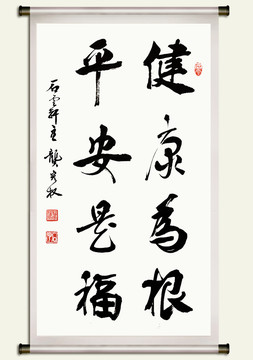 健康為根
平安是福
石雲軒主龔光权